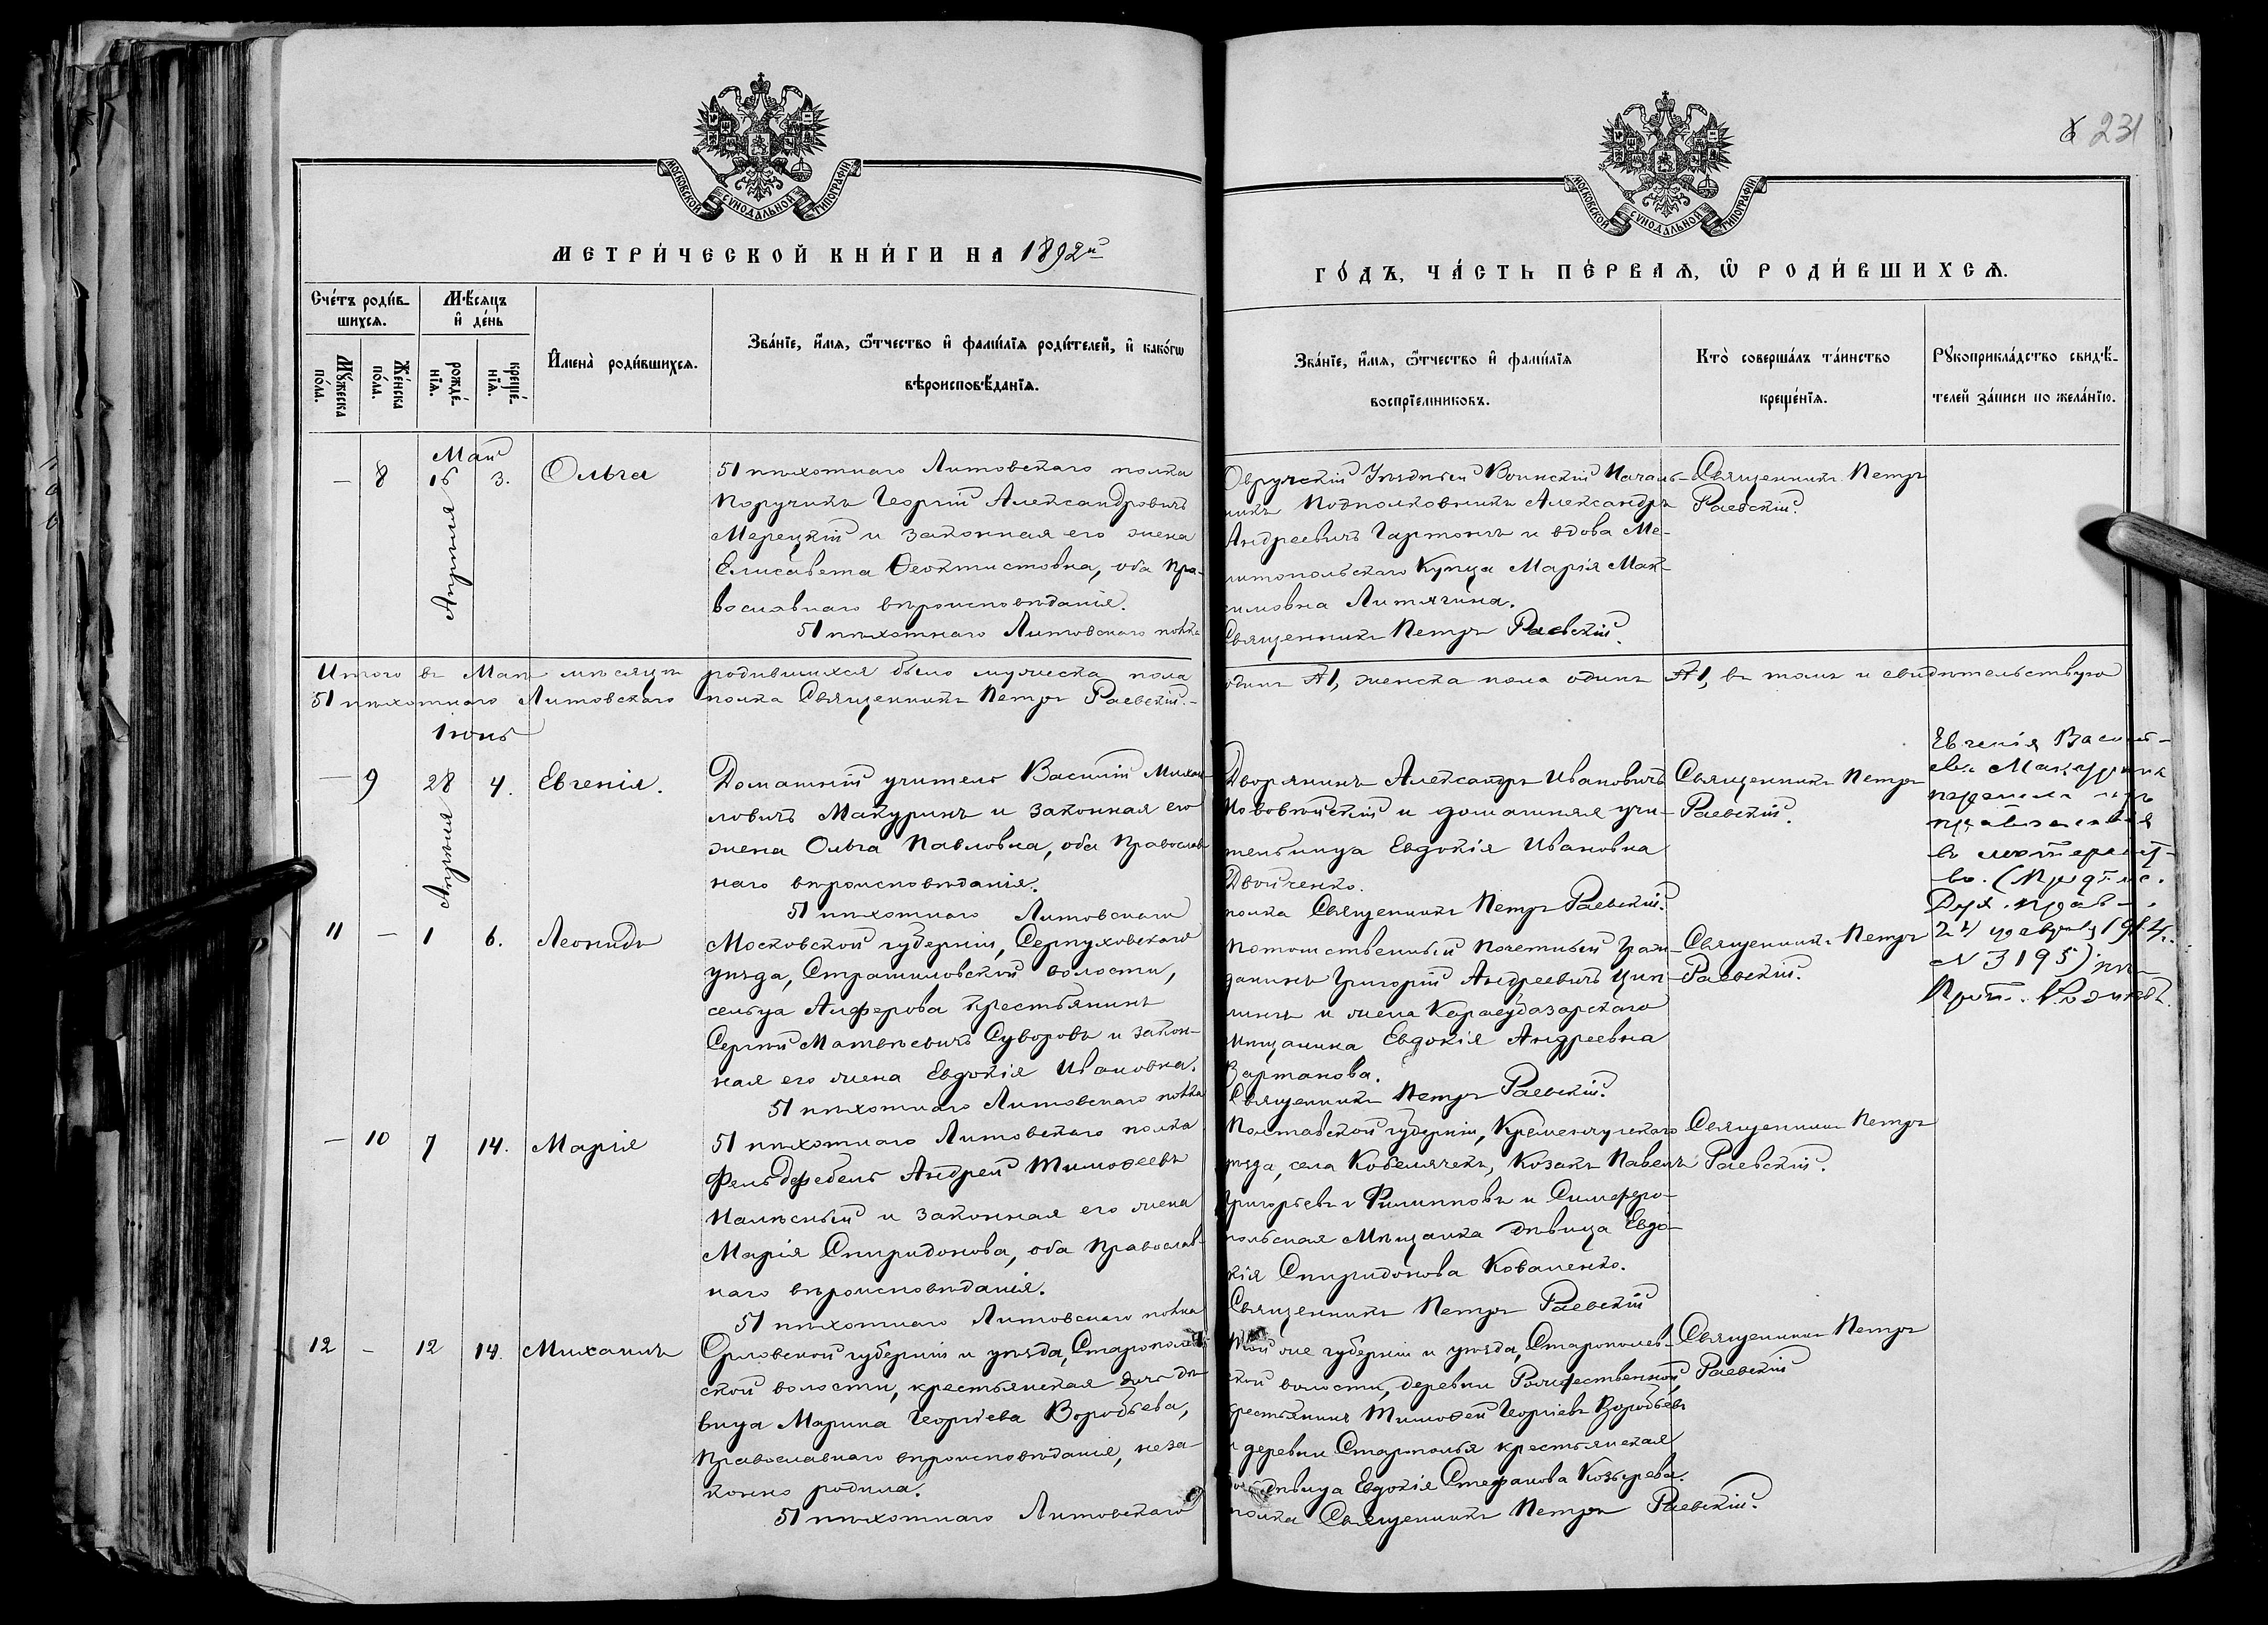 231
МОСКОВСКОЙ СѴНОДАЛЬНОЙ ТИПОГРАФІИ
МОСКОВСКОЙ СѴНОДАЛЬНОЙ ТИПОГРАФІИ
МЕТРИ́ЧЕСКОЙ КНИ́ГИ НА 1892й
ГО́ДЪ, ЧА́СТЬ ПЕ́РВАЯ, Ѡ РОДИ́ВШИХСЯ.
Сче́тъ роди́в-
шихся.
Мꙋ́жеска по́ла.
Же́нска по́ла.
Мѣ́сяцъ
и де́нь
рожде́-
нїя.
креще́-
нїя.
Имена̀ роди́вшихся.
Зва́нїе, и́мя, ѻ́тчество и фами́лїя роди́телей, и како́гѡ
вѣроисповѣ́данїя.
Зва́нїе, и́мя, ѻ́тчество и фами́лїя
воспрїе́мниковъ.
Кто̀ соверша́лъ та́инство
креще́нїя.
Рꙋкоприкла́дство свидѣ́-
телей за́писи по жела́нїю.
Май
— 8 15 3. Ольга
Апрѣля
51 пѣхотнаго Литовскаго полка
Поручикъ Георгій Александровичъ
Мерецкій и законная его жена
Елисавета Ѳеоктистовна, оба Пра-
вославнаго вѣроисповѣданія.
51 пѣхотнаго Литовскаго полка
Овручскій Уѣздный Воинскій Началь-
никъ Подполковникъ Александръ
Андреевичъ Гартонгъ и вдова Ме-
литопольскаго Купца Марія Мак-
симовна Литягина.
Священникъ Петръ Раевскій.
Священникъ Петръ
Раевскій.
Итого въ Маѣ мѣсяцѣ родившихся было мужеска пола одинъ 1, женска пола одинъ 1, въ томъ и свидѣтельствую
51 пѣхотнаго Литовскаго полка Священникъ Петръ Раевскій.
Іюнь
— 9 28 4. Евгенія.
Апрѣля
Домашній учитель Василій Михаи-
ловичъ Макуринъ и законная его
жена Ольга Павловна, оба Православ-
наго вѣроисповѣданія.
51 пѣхотнаго Литовскаго
Дворянинъ Александръ Ивановичъ
и домашняя учи-
тельница Евдокія Ивановна
Двойченко.
полка Священникъ Петръ Раевскій.
Священникъ Петръ
Раевскій.
Евгенія Василь-
ева Макурина
изъ
православія
въ лютеранст-
во. (Предпис.
Дух. Прав.
24 1914 г.
№ 3195)
Прот.
11 — 1 6. Леонидъ
Московской губерніи, Серпуховскаго
уѣзда, Страшиловской волости,
сельца Алферова крестьянинъ
Сергѣй Матвѣевичъ Суворовъ и закон-
ная его жена Евдокія Ивановна.
51 пѣхотнаго Литовскаго полка
Потомственный Почетный Граж-
данинъ Григорій Андреевичъ
и жена Карасубазарскаго
Мѣщанина Евдокія Андреевна
Вартанова.
Священникъ Петръ Раевскій.
Священникъ Петръ
Раевскій.
— 10 7 14. Марія
51 пѣхотнаго Литовскаго полка
Фельдфебель Андрей Тимоѳеевъ
и законная его жена
Марія Спиридонова, оба Православ-
наго вѣроисповѣданія.
51 пѣхотнаго Литовскаго полка
Полтавской губерніи, Кременчугскаго
уѣзда, села Кобелячекъ, Козакъ Павелъ
Григорьевъ Филипповъ и Симферо-
польская Мѣщанка дѣвица Евдо-
кія Спиридонова Коваленко.
Священникъ Петръ Раевскій
Священникъ Петръ
Раевскій.
12 — 12 14. Михаилъ
Орловской губерніи и уѣзда, Старополь-
ской волости, крестьянская дочь дѣ-
вица Марина Георгіева Воробьева,
Православнаго вѣроисповѣданія, неза-
конно родила.
51 пѣхотнаго Литовскаго
Той же губерніи и уѣзда, Старополь-
ской волости, деревни Рождественной
крестьянинъ Тимоѳей Георгіевъ Воробьевъ
и деревни Старополья крестьянская
дочь дѣвица Евдокія Стефанова Козырева.
полка Священникъ Петръ Раевскій.
Священникъ Петръ
Раевскій